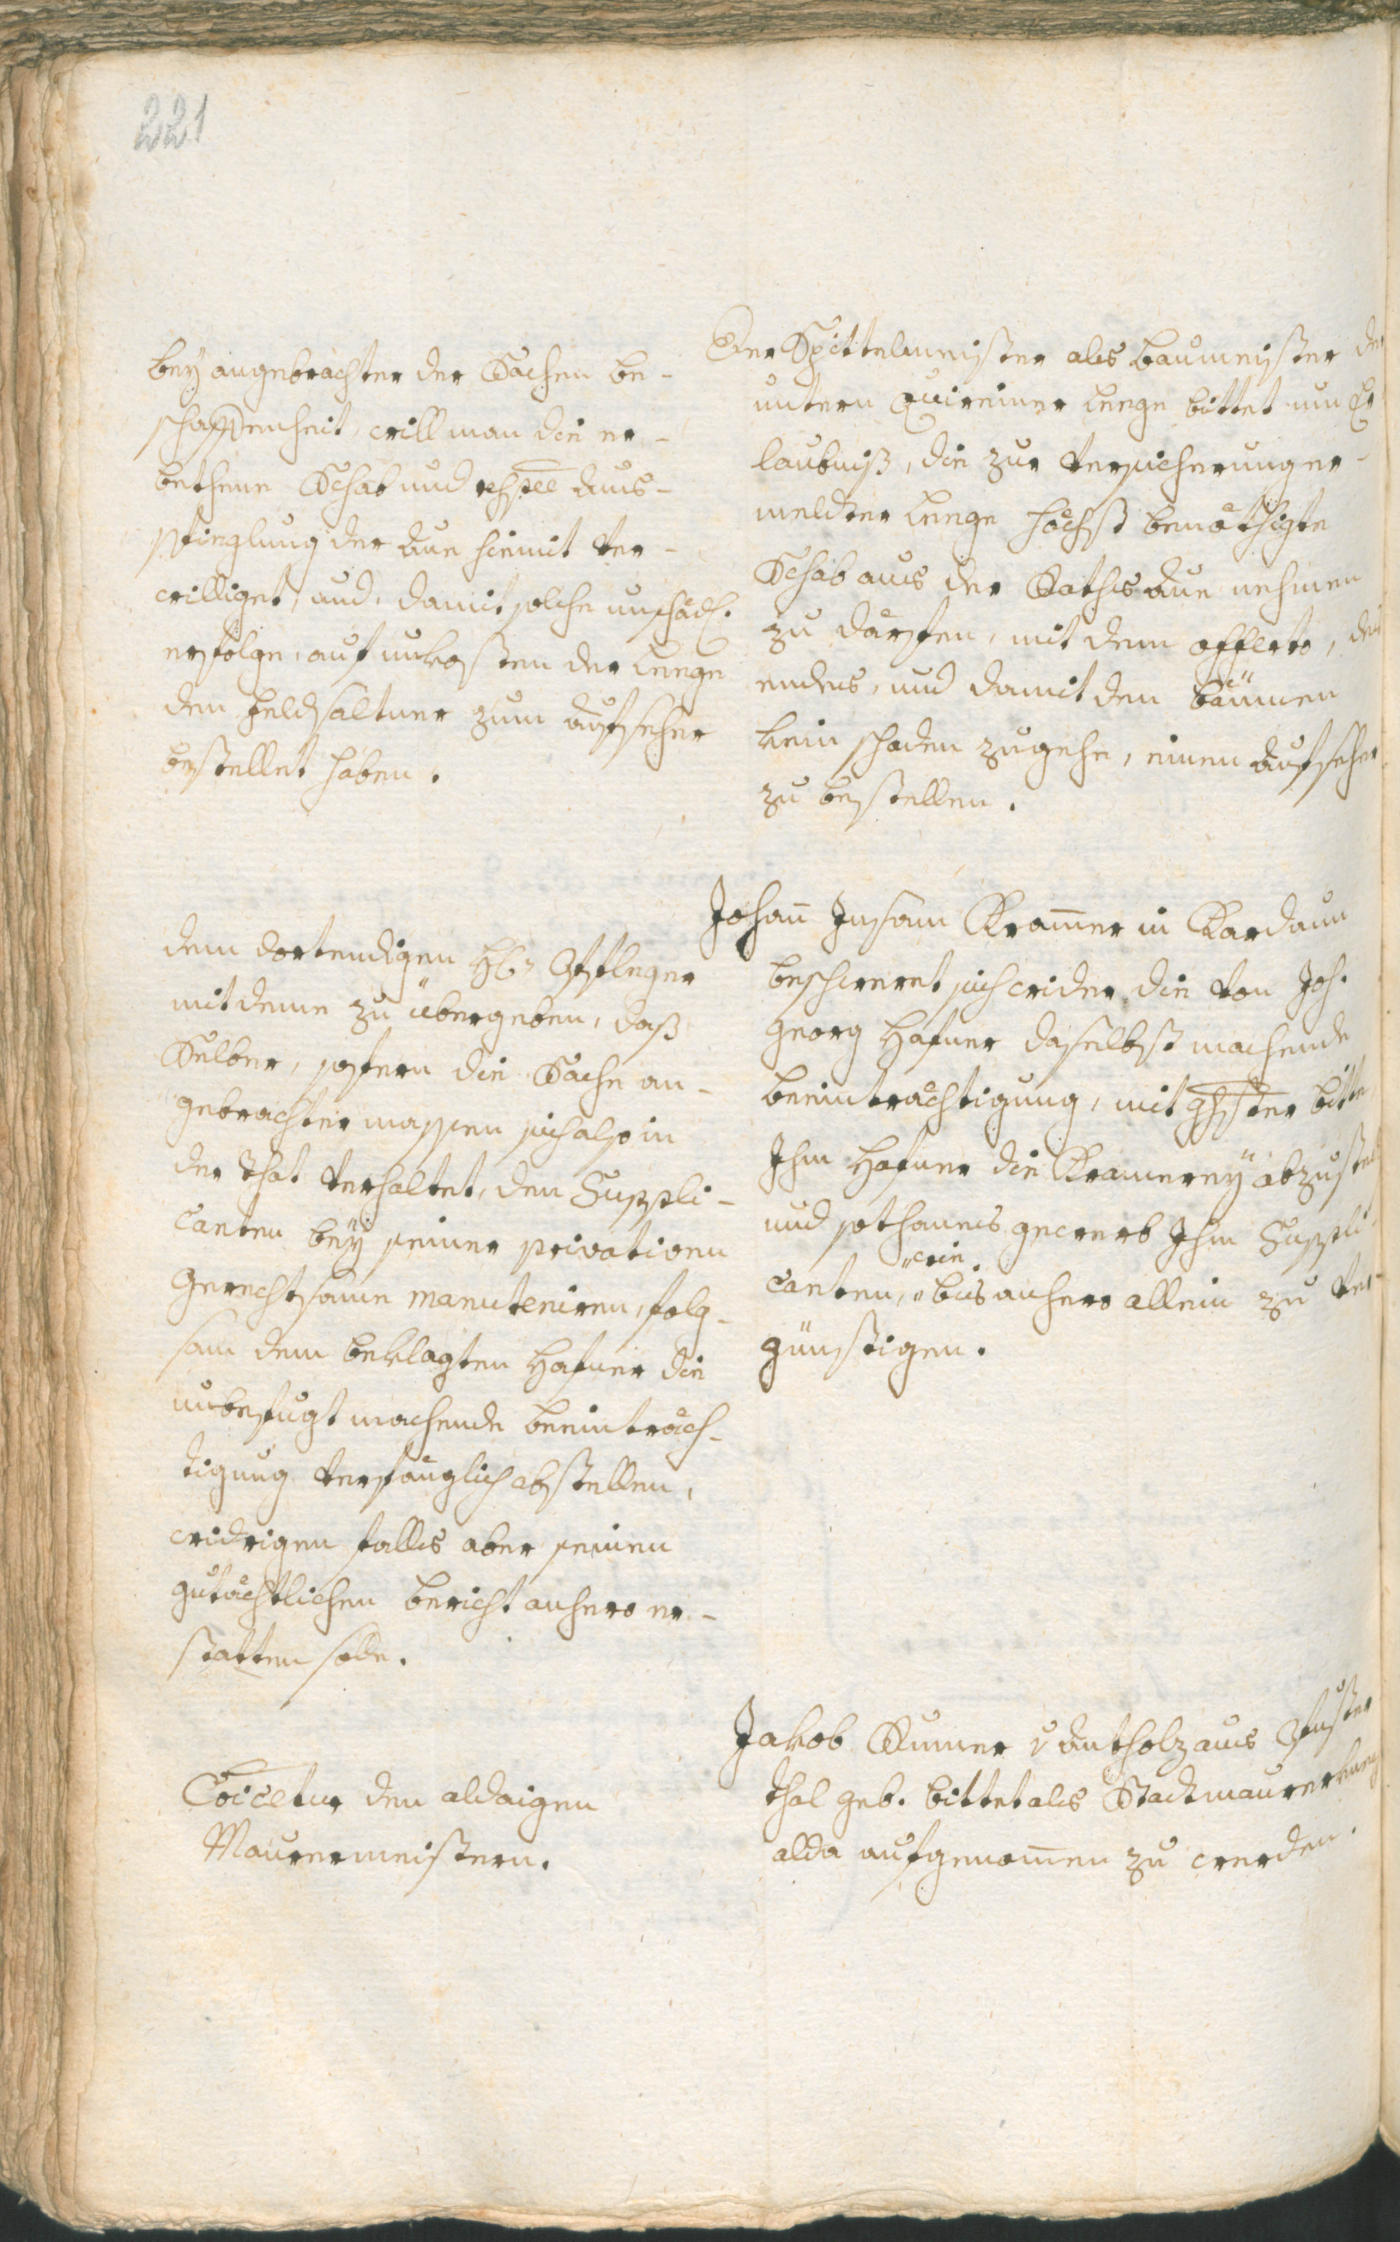 221
bey angebrachter der Sachen be-
schaffenheit, will man die er-
bethene Schab und respee Aus-
stieglung der Aue hiemit ver-
williget, und, damit solche unschädl.
erfolge, auf unkosten der Leege
den Feldsaltner zum Aufseher
bestellet haben.
dem dortendigen H: Pfleger
mit deme zu übergeben, daß
Selber, sofern die Sache an-
gebrachter massen sich also in
der That verhaltet, den Suppli-
canten bey seiner privativen
Gerechtsame manuteniren, folg-
sam dem beklagten Hafner die
unbefugt machende beeinträch-
tigung verfänglich abstellen,
widrigen falls aber seinen
gutächtlichen bericht anhero er-
statten solle.
Coicetur den aldaigen
Maurermeistern.
Der Spittelmeister als baumeister der
untern Quireiner Leege bittet um Er
laubniß, die zur versicherung er-
meldter Leege höchst benöthigte
Schab aus der Raths Aue nehmen
zu därffen, mit dem offerto, der
enders, und damit den bäumen
kein schaden zugehe, einen Aufseher
zu bestellen.
Johann Insam Krammer in Kardaun
beschweret sich wider die von Joh.
Georg Hafner daselbst machende
beeinträchtigung, mit ghster bitte
Ihm Hafner die Kramerey abzustel
und sothannes gewerb Ihm Suppli-
canten, wie bis anhero allein zu ver-
günstigen.
Jakob Kumer v Antholz aus Puster
thal geb. bittet als Stadtmaurer
alda aufgenommen zu werden.